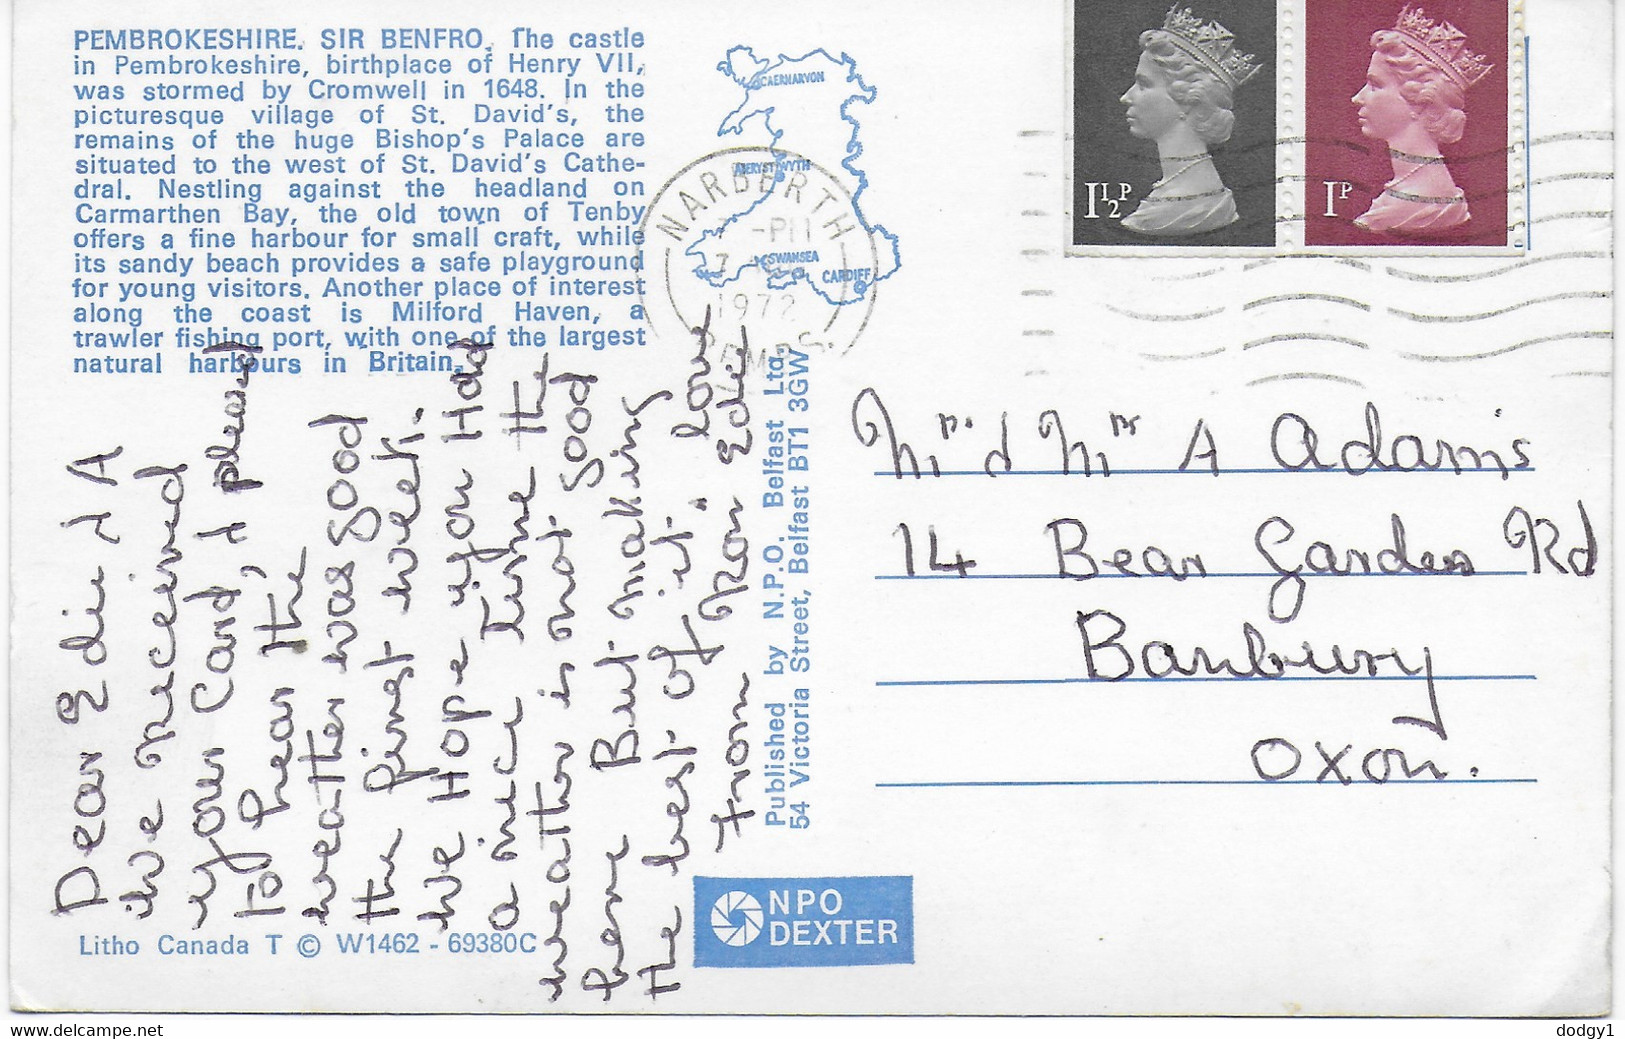 PEMBROKESHIRE. SIR BENFRO. The castle
in Pembrokeshire, birthplace of Henry VII,
was stormed by Cromwell in 1648. In the
picturesque village of St. David's, the
remains of the huge Bishop's Palace are
situated to the west of St. David's Cathe-
dral. Nestling against the headland on
Carmarthen Bay, the old town of Tenby
offers a fine harbour for small craft, while
its sandy beach provides a safe playground
for young visitors. Another place of interest
along the coast is Milford Haven, a
trawler fishing port, with one of the largest
natural harbours in Britain.
CAERNARVON
ABERYSTWYTH
SWANSEA
CARDIFF
NARBERTH
7-PM
1972
PEMBS.
1½P
1P
Dear Edie & A
we received
your Card, & pleased
to hear the
weather was good
the first week.
we Hope you Had
a nice time the
weather is not good
here But making
the best of it. love
from Ron Edie
Published by N.P.O. Belfast Ltd.
54 Victoria Street, Belfast BT1 3GW
Mr. & Mrs A Adams
14 Bear Garden Rd
Banbury
Oxon.
Litho Canada T © W1462 - 69380C
NPO
DEXTER
www.delcampe.net
dodgy1